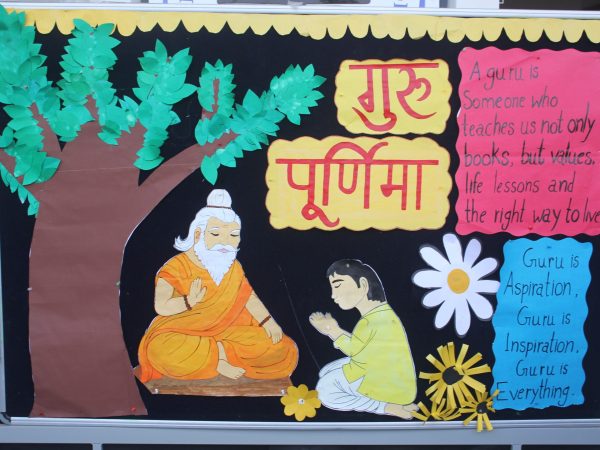 गुरू
पूर्णिमा
A guru is
Someone who
teaches us not only
books, but values,
life lessons and
the right way to live
Guru is
Aspiration,
Guru is
Inspiration,
Guru is
Everything.